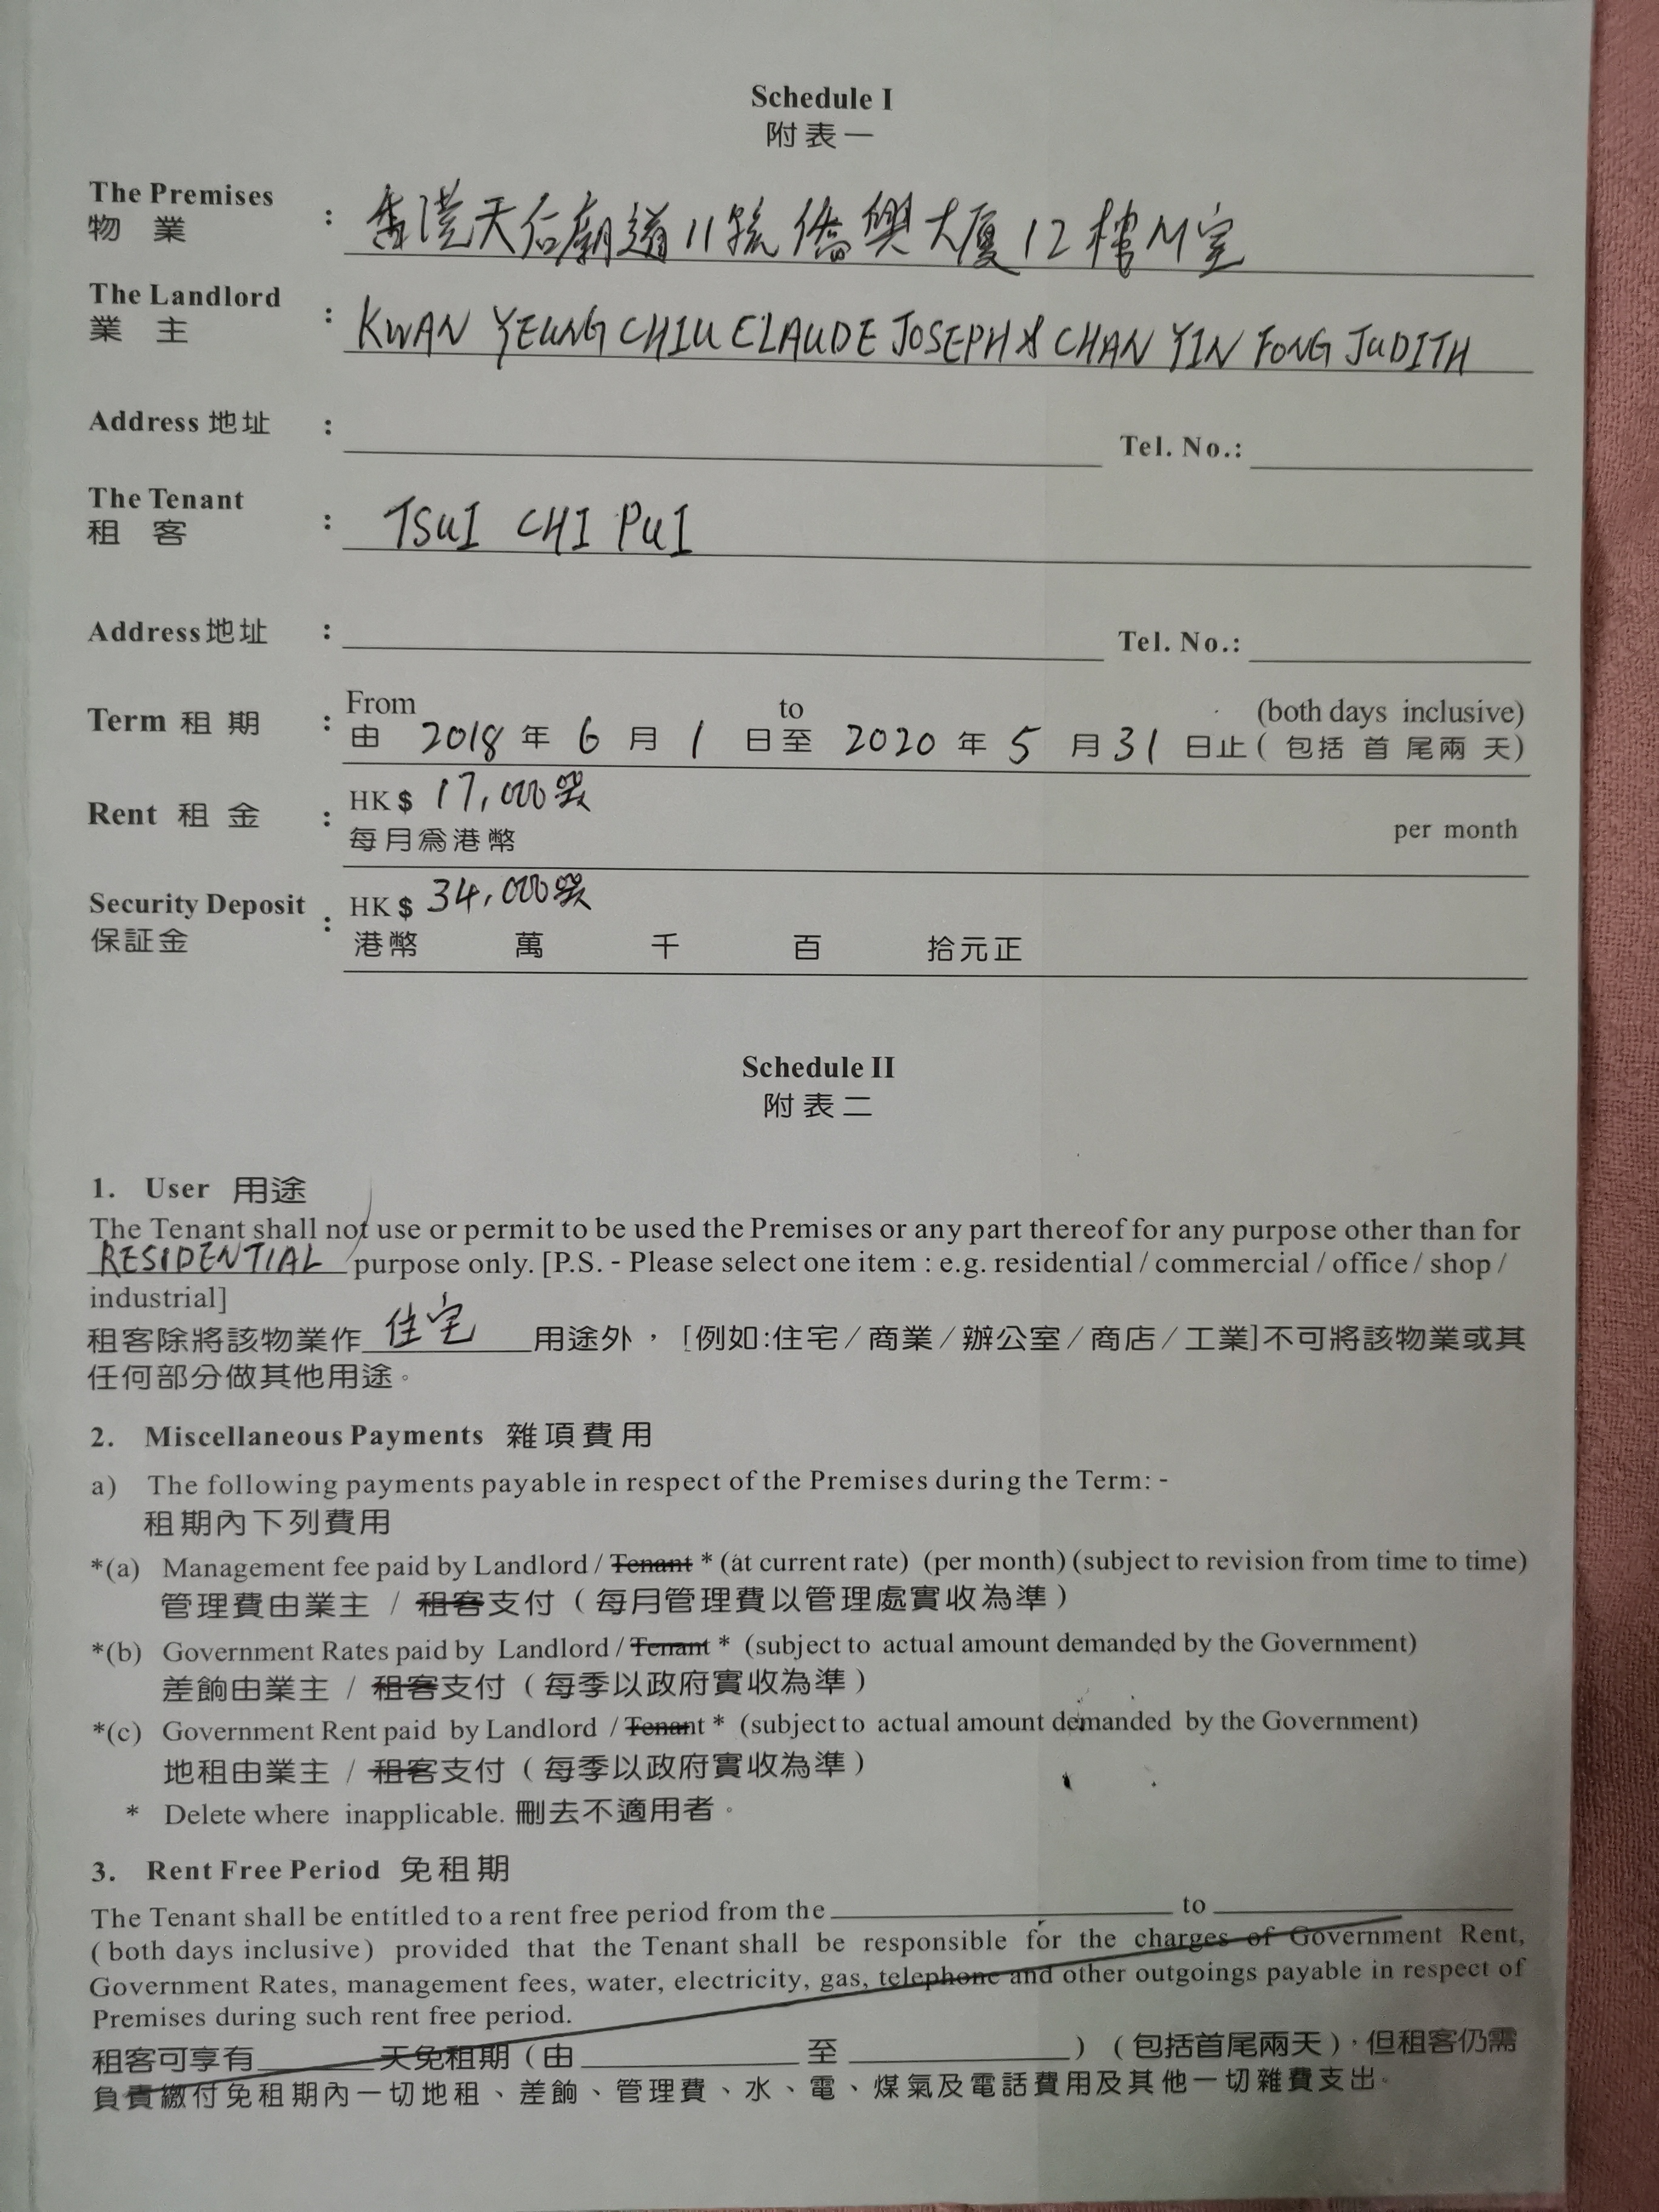 Schedule I
附表一
The Premises
物 業 : 香港天后廟道11號僑興大廈12樓M室
The Landlord
業 主 : KWAN YEUNG CHIU CLAUDE JOSEPH & CHAN YIN FONG JUDITH
Address 地址 : Tel. No.:
The Tenant
租 客 : TSUI CHI PUI
Address 地址 : Tel. No.:
From to (both days inclusive)
Term 租 期 : 由 2018 年 6 月 1 日至 2020 年 5 月 31 日止 ( 包括 首 尾兩 天)
Rent 租 金 : HK $ 17,000
每月為港幣 per month
Security Deposit : HK $ 34,000
保証金 港幣 萬 千 百 拾元正
Schedule II
附表二
1. User 用途
The Tenant shall not use or permit to be used the Premises or any part thereof for any purpose other than for
RESIDENTIAL purpose only. [P.S. - Please select one item : e.g. residential / commercial / office / shop /
industrial]
租客除將該物業作 住宅 用途外，[例如:住宅/商業/辦公室/商店/工業]不可將該物業或其
任何部分做其他用途。
2. Miscellaneous Payments 雜項費用
a) The following payments payable in respect of the Premises during the Term: -
租期內下列費用
*(a) Management fee paid by Landlord / Tenant * (at current rate) (per month) (subject to revision from time to time)
管理費由業主 / 租客支付 ( 每月管理費以管理處實收為準 )
*(b) Government Rates paid by Landlord / Tenant * (subject to actual amount demanded by the Government)
差餉由業主 / 租客支付 ( 每季以政府實收為準 )
*(c) Government Rent paid by Landlord / Tenant * (subject to actual amount demanded by the Government)
地租由業主 / 租客支付 ( 每季以政府實收為準 )
* Delete where inapplicable. 刪去不適用者。
3. Rent Free Period 免租期
The Tenant shall be entitled to a rent free period from the to
( both days inclusive ) provided that the Tenant shall be responsible for the charges of Government Rent,
Government Rates, management fees, water, electricity, gas, telephone and other outgoings payable in respect of
Premises during such rent free period.
租客可享有 天免租期 ( 由 至 ) ( 包括首尾兩天 )，但租客仍需
負責繳付免租期內一切地租、差餉、管理費、水、電、煤氣及電話費用及其他一切雜費支出。